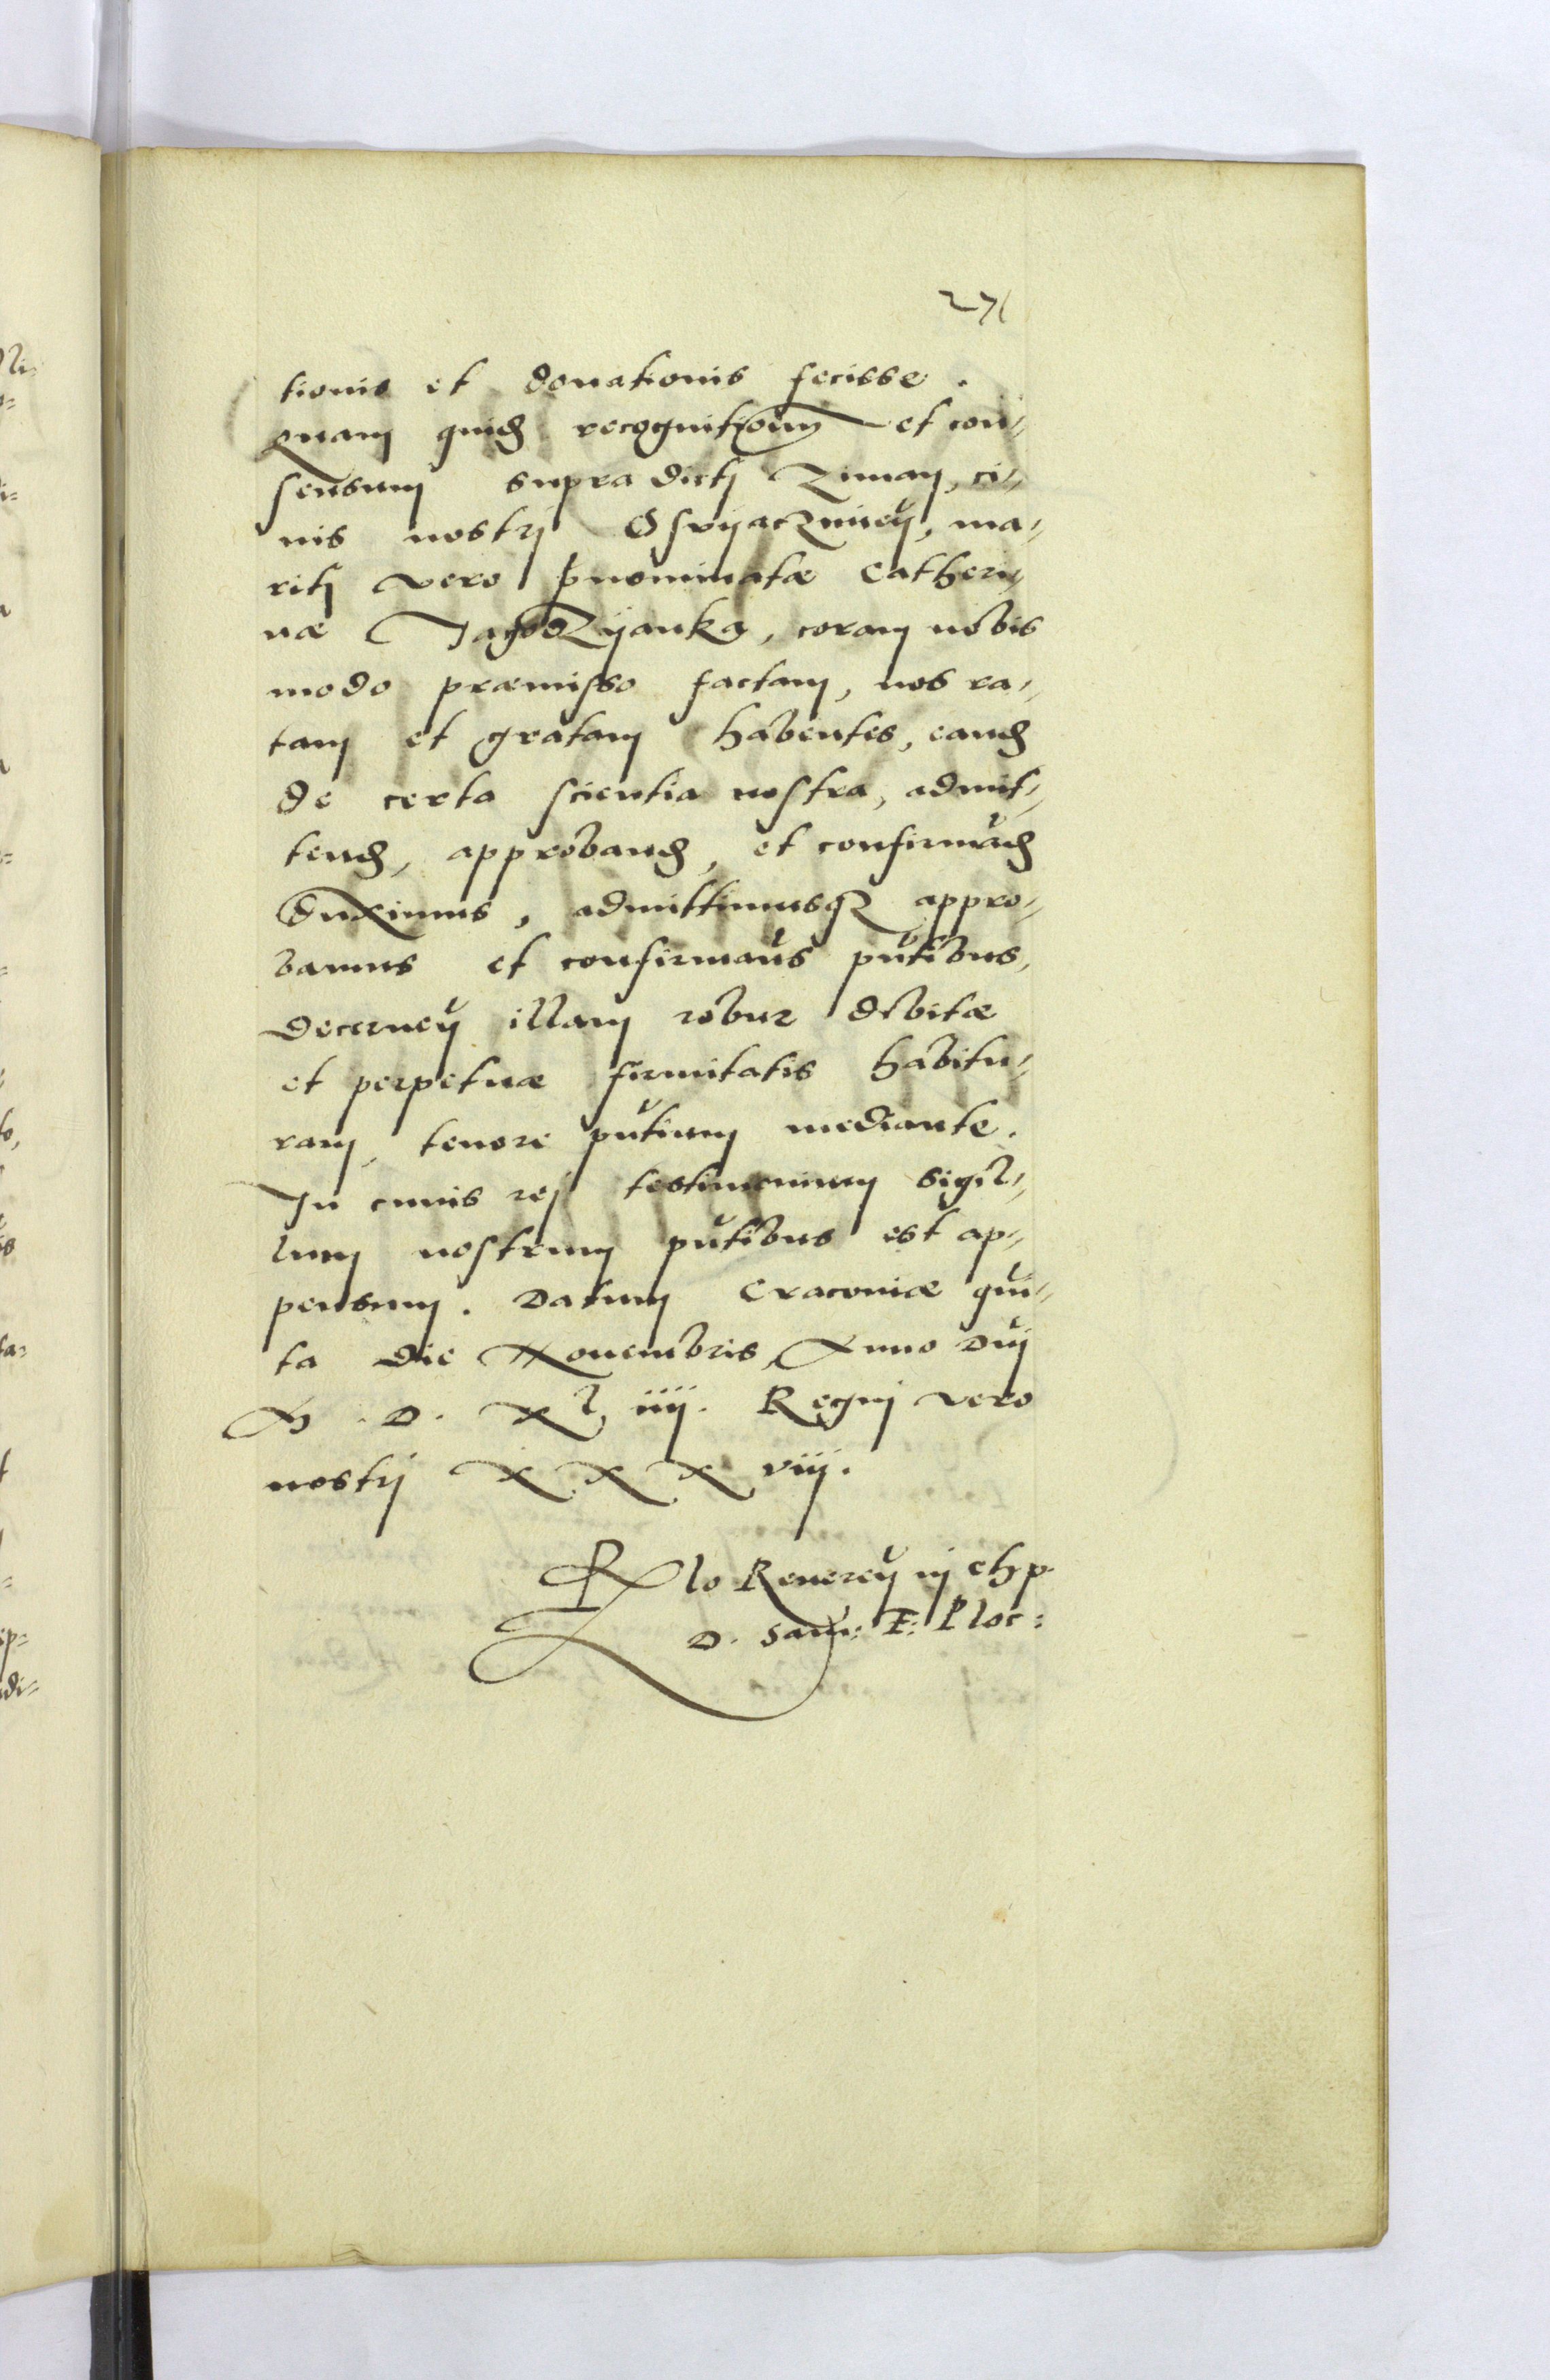 271
tionis et donationis fecisse.
Quam quid recognitionem et con=
sensum supra dictj Ziman, ci=
nis nostrj Osvyaczimen, ma=
ritj vero pnominatæ Catheri=
næ Jagodzyanka, coram nobis
modo præmisso factam, nos ra=
tam et gratam habentes, eand
de certa scientia nostra, admit=
tend, approband, et confirmãd
duximus, admittimusqz appro=
bamus et confirmaũs pñtibus,
decerneñ illam robur debitæ
et perpetuæ firmitatis habitu=
ram, tenore pñtium mediante.
In cuius rej testimonium sigil=
lum nostrum pñtibus est ap=
pensum. Datum Cracoviæ qui=
ta die Nouembris, Anno Dñj
M. D. xl iiij. Regnj vero
nostrj XXX viij.
Rlo Reuereñ in chp
D. Sam: E: Ploc: